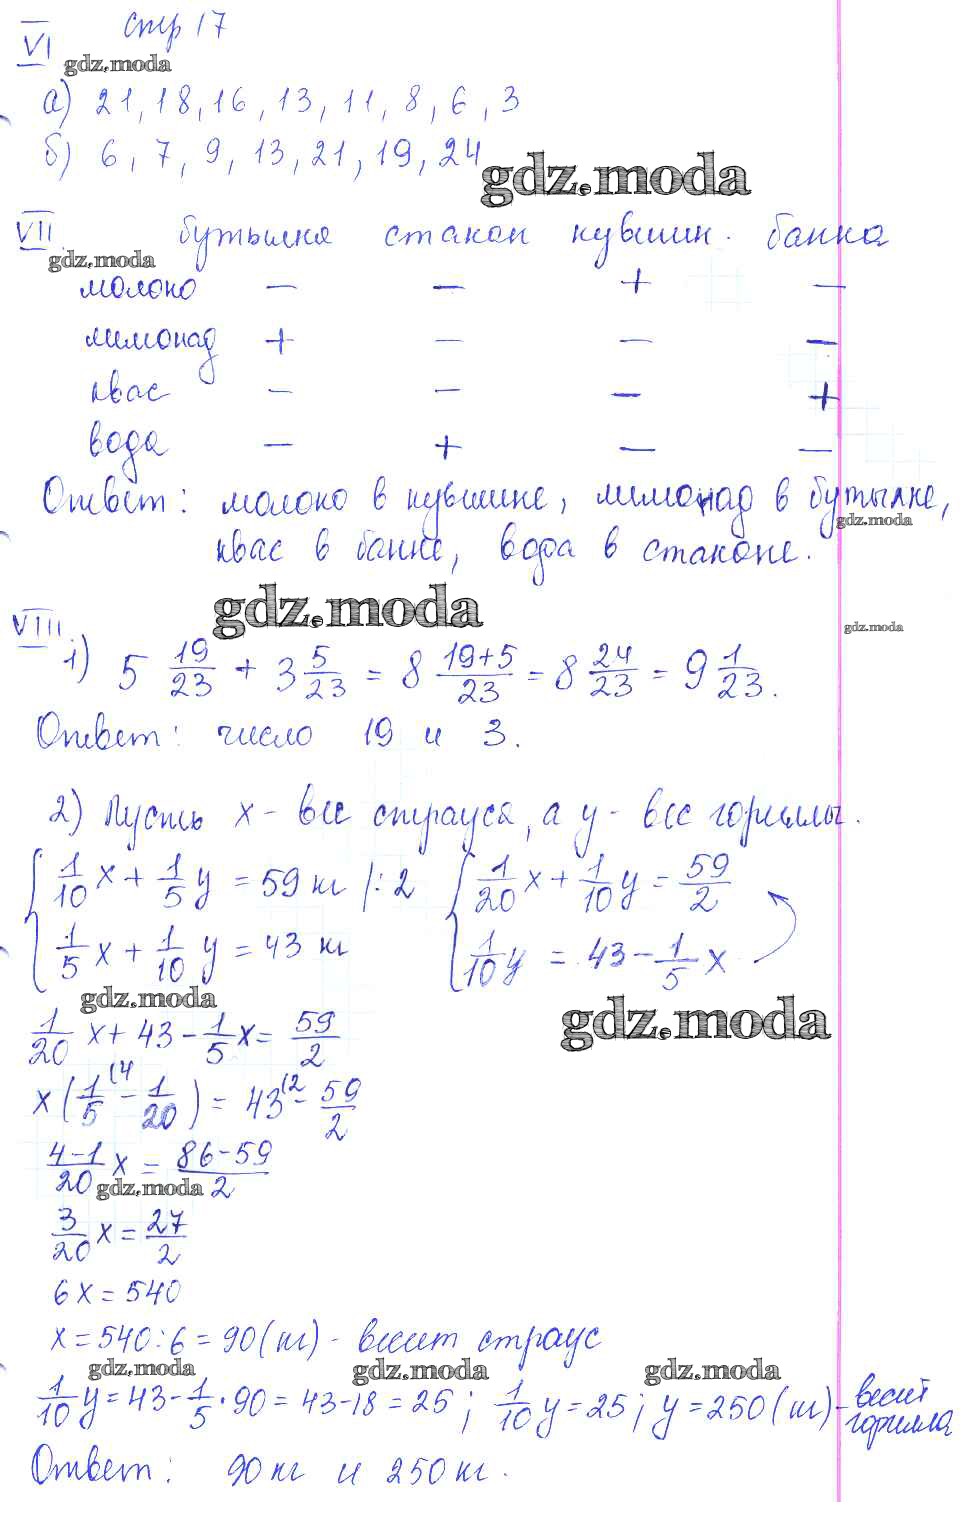 стр 17
VI
gdz.moda
а) 21, 18, 16, 13, 11, 8, 6, 3
б) 6, 7, 9, 13, 21, 19, 24
gdz.moda
VII. бутылка стакан кувшин. банка
gdz.moda
молоко − − + −
лимонад + − − −
квас − − − +
вода − + − −
Ответ: молоко в кувшине, лимонад в бутылке,
gdz.moda
квас в банке, вода в стакане.
gdz.moda
VIII.
gdz.moda
1) 5 19/23 + 3 5/23 = 8 (19+5)/23 = 8 24/23 = 9 1/23.
Ответ: число 19 и 3.
2) Пусть x - вес страуса, а y - вес гориллы.
{ 1/10 x + 1/5 y = 59 кг |:2 { 1/20 x + 1/10 y = 59/2
1/5 x + 1/10 y = 43 кг 1/10 y = 43 - 1/5 x
gdz.moda
gdz.moda
1/20 x + 43 - 1/5 x = 59/2
x (1/5 (4 - 1/20) = 43 (2 - 59/2
(4-1)/20 x = (86-59)/2
gdz.moda
3/20 x = 27/2
6x = 540
x = 540:6 = 90 (кг) - весит страус
gdz.moda gdz.moda gdz.moda
1/10 y = 43 - 1/5 · 90 = 43 - 18 = 25; 1/10 y = 25; y = 250 (кг) - весит горилла
Ответ: 90 кг и 250 кг.